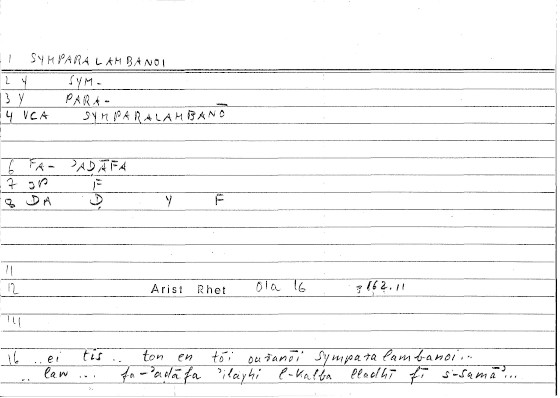 1 SYMPARALAMBANOI
2 Y SYM-
3 Y PARA-
4 VCA SYMPARALAMBANŌ
6 FA- ʾAḌĀFA
7 F
8 DA Ḍ Y F
11
12 Arist Rhet 01a 16 162.11
14
16 ..ei tis .. ton en tōi ouranōi symparalambanoi..
.. law ... fa-ʾaḍāfa ʾilayhi l-kalba lladhī fī s-samāʾ...